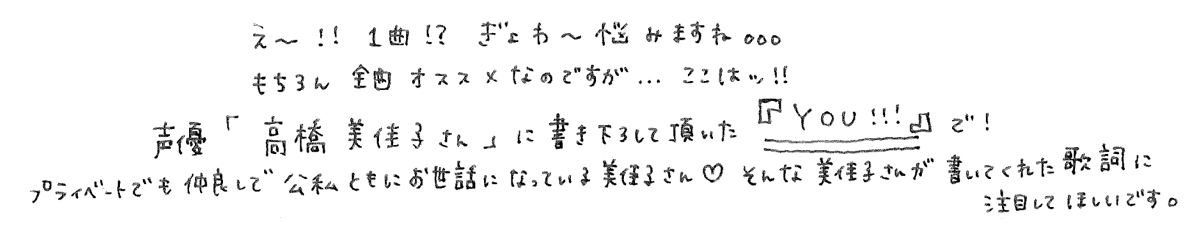 え〜!! 1曲!? ぎょわ〜悩みますね。。。
もちろん 全曲 オススメなのですが... ここはッ!!
声優「高橋 美佳子さん」に書き下ろして頂いた『YOU!!!』で!
プライベートでも仲良しで 公私ともにお世話になっている美佳子さん♡ そんな美佳子さんが書いてくれた歌詞に
注目してほしいです。